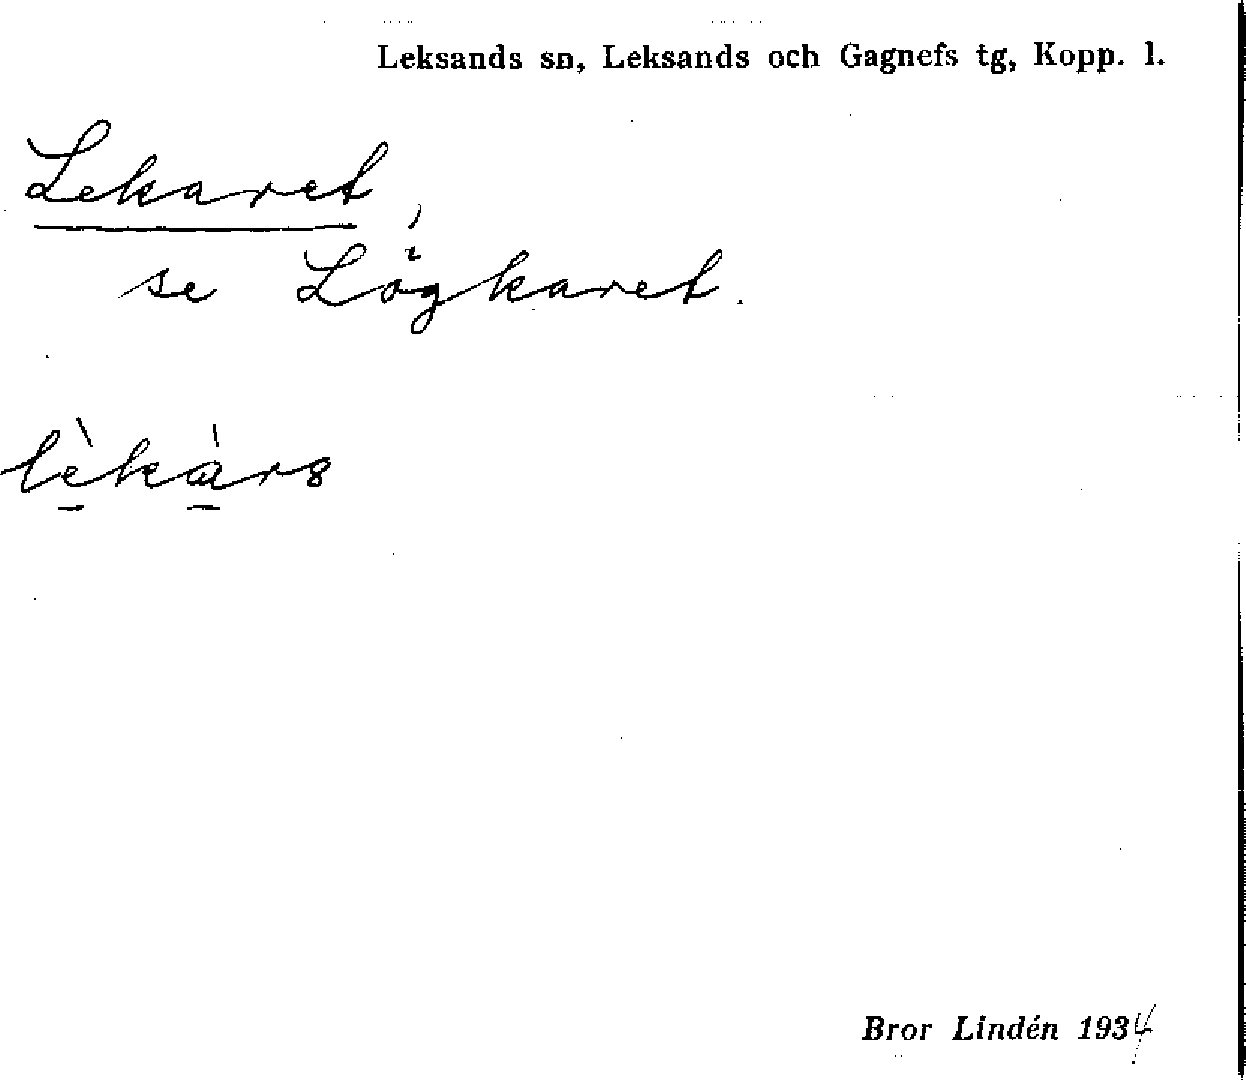 Leksands sn, Leksands och Gagnefs tg, Kopp. l.
Lekaret,
se Lögkaret.
lèkàrs
Bror Lindén 1934